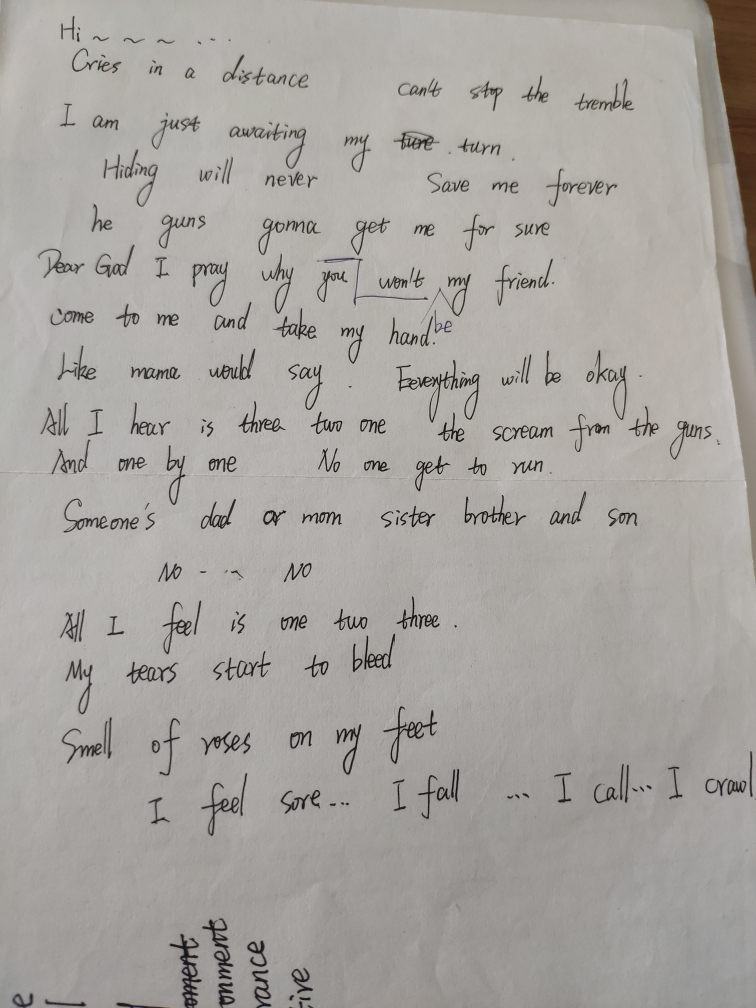 Hi ~ ~ ~ ...
Cries in a distance can't stop the tremble
I am just awaiting my ture. turn.
Hiding will never Save me forever
he guns gonna get me for sure
Dear God I pray why you won't be my friend.
come to me and take my hand.
Like mama would say. Eeverything will be okay.
All I hear is three two one the scream from the guns.
And one by one No one get to run.
Someone's dad or mom sister brother and son
NO - .. NO
All I feel is one two three.
My tears start to bleed
Smell of roses on my feet
I feel sore... I fall ... I call... I crawl